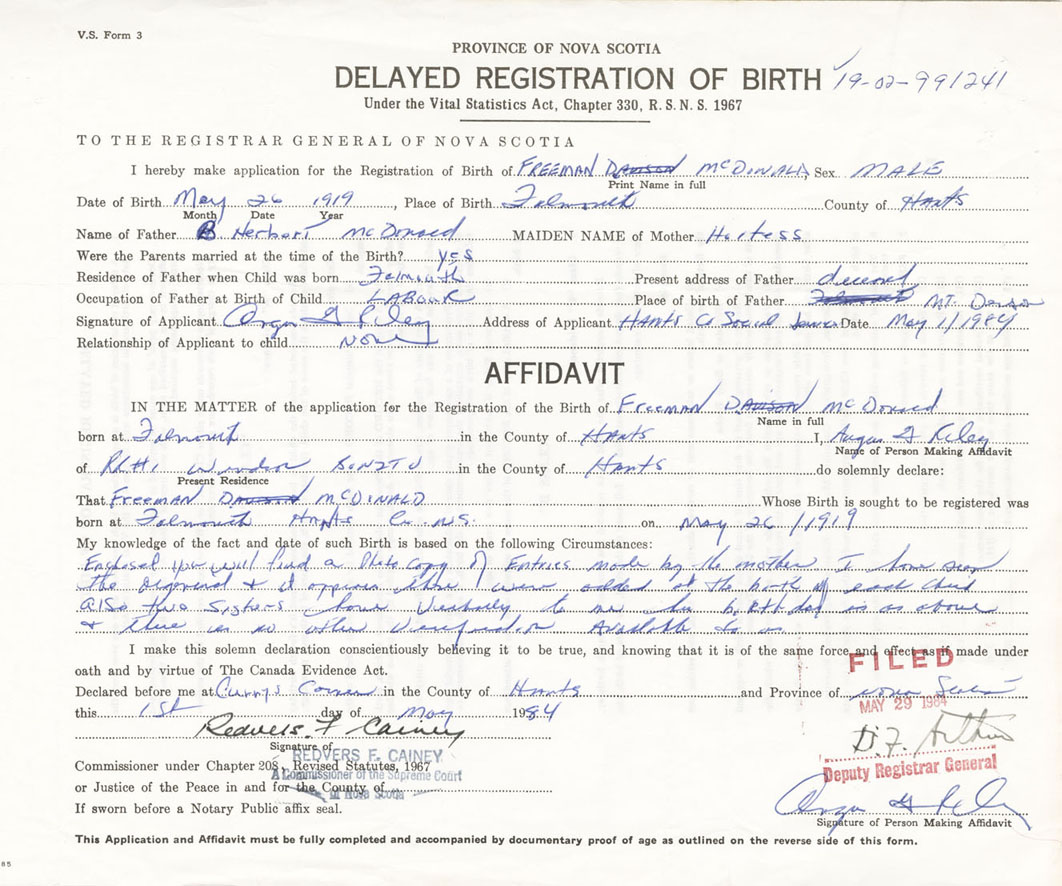 V.S. Form 3
PROVINCE OF NOVA SCOTIA
DELAYED REGISTRATION OF BIRTH 19-02-991241
Under the Vital Statistics Act, Chapter 330, R.S.N.S. 1967
TO THE REGISTRAR GENERAL OF NOVA SCOTIA
I hereby make application for the Registration of Birth of FREEMAN DAWSON McDONALD, Sex MALE
Print Name in full
Date of Birth May 26 1919, Place of Birth Falmouth County of HANTS
Month Date Year
Name of Father Herbert McDonald MAIDEN NAME of Mother
Were the Parents married at the time of the Birth? yes
Residence of Father when Child was born Falmouth Present address of Father
Occupation of Father at Birth of Child LABOUR Place of birth of Father Falmouth MT.
Signature of Applicant Angus G Riley Address of Applicant HANTS Co Social Date May 1/1984
Relationship of Applicant to child NONE
AFFIDAVIT
IN THE MATTER of the application for the Registration of the Birth of Freeman DAWSON McDonald
Name in full
born at Falmouth in the County of HANTS I, Angus G Riley
Name of Person Making Affidavit
of Windsor in the County of Hants do solemnly declare:
Present Residence
That Freeman DAWSON McDONALD Whose Birth is sought to be registered was
born at Falmouth Hants Co. N.S. on May 26/1919
My knowledge of the fact and date of such Birth is based on the following Circumstances:
Enclosed you will find a Photo Copy of Entries made by the mother I have seen
the original & it appears these were added at the birth of each child
also two Sisters have to me his birthday is as above
& there is no other Verification Available to us
I make this solemn declaration conscientiously believing it to be true, and knowing that it is of the same force and effect as if made under
oath and by virtue of The Canada Evidence Act.
FILED
Declared before me at Currys Corner in the County of Hants and Province of Nova Scotia
MAY 29 1984
this 1st day of May 1984
Redvers F Cainey
Signature of
REDVERS F. CAINEY
Commissioner under Chapter 208, Revised Statutes, 1967
A Commissioner of the Supreme Court
Deputy Registrar General
or Justice of the Peace in and for the County of
in Nova Scotia
If sworn before a Notary Public affix seal.
Angus G Riley
Signature of Person Making Affidavit
This Application and Affidavit must be fully completed and accompanied by documentary proof of age as outlined on the reverse side of this form.
85